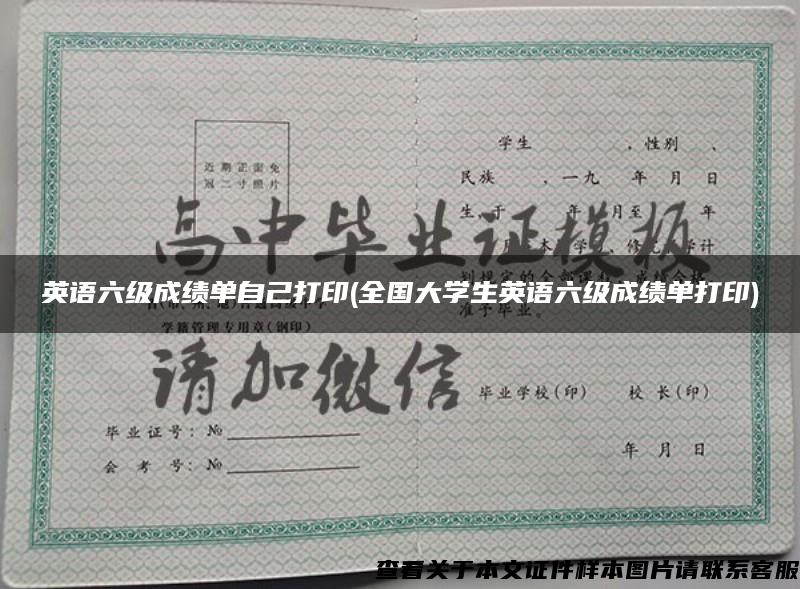 近期正面免
冠二寸照片
学籍管理专用章(钢印)
毕业证号：№
会考号：№
学生 ，性别 、
民族 ，一九 年 月 日
生，于 年 月至 年
准予毕业。
毕业学校(印) 校长(印)
年 月 日
高中毕业证模板
请加微信
英语六级成绩单自己打印(全国大学生英语六级成绩单打印)
查看关于本文证件样本图片请联系客服